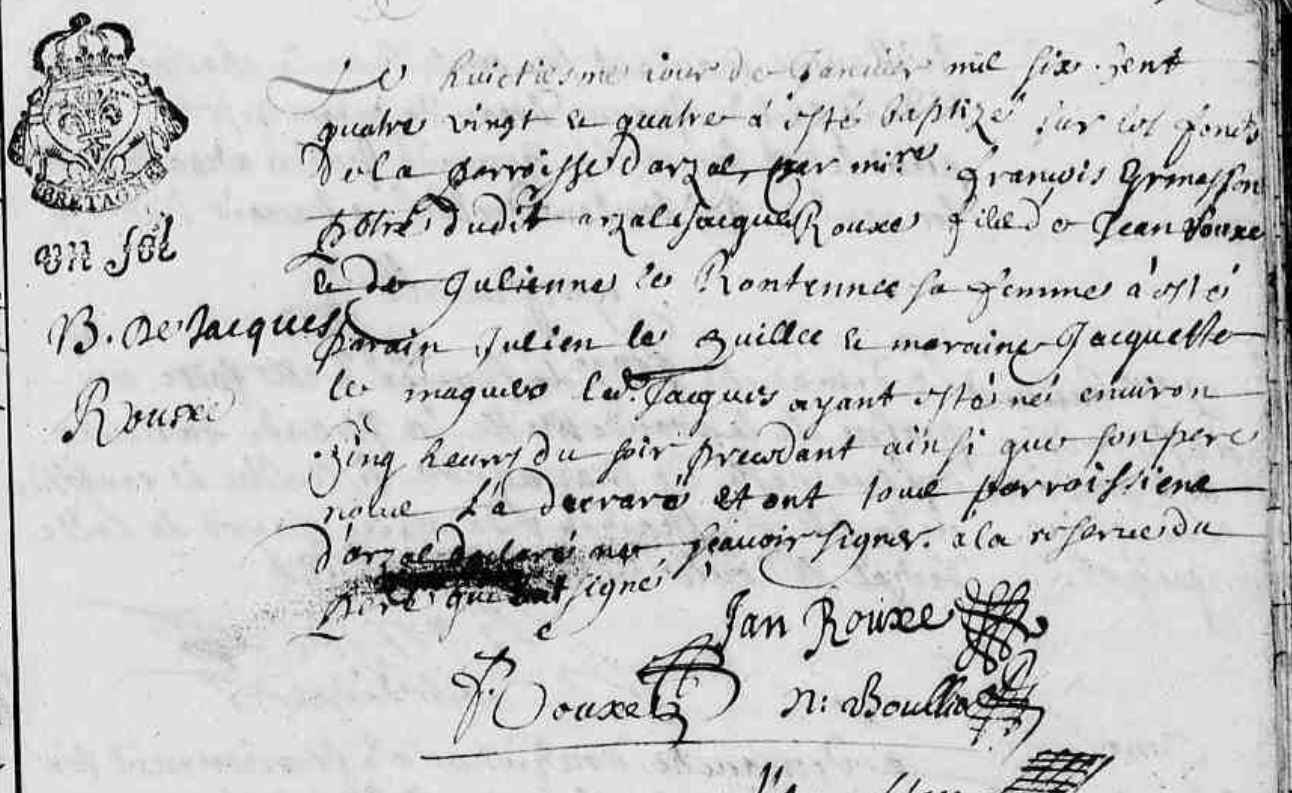 BRETAGNE
un sol
B. De Jacques
Rouxe
Le huictiesme jour de Janvier mil six cent
quatre vingt & quatre à esté baptizé sur les fonts
de la parroisse d'arzal, par mire. François Grimasson
pbtre dudit arzal Jacques Rouxe fils de Jean Rouxe
& de Julienne le sa femme à esté
parain Julien le Quillec & maraine Jacquette
le led. Jacques ayant esté né environ
cinq heures du soir precedant ainsi que son pere
nous l'à decraré et ont tous parroissiens
d'arzal declaré ne scavoir signer. a la reserve du
pere qui ont signé
Jan Rouxe
J. Rouxel N: Boullia